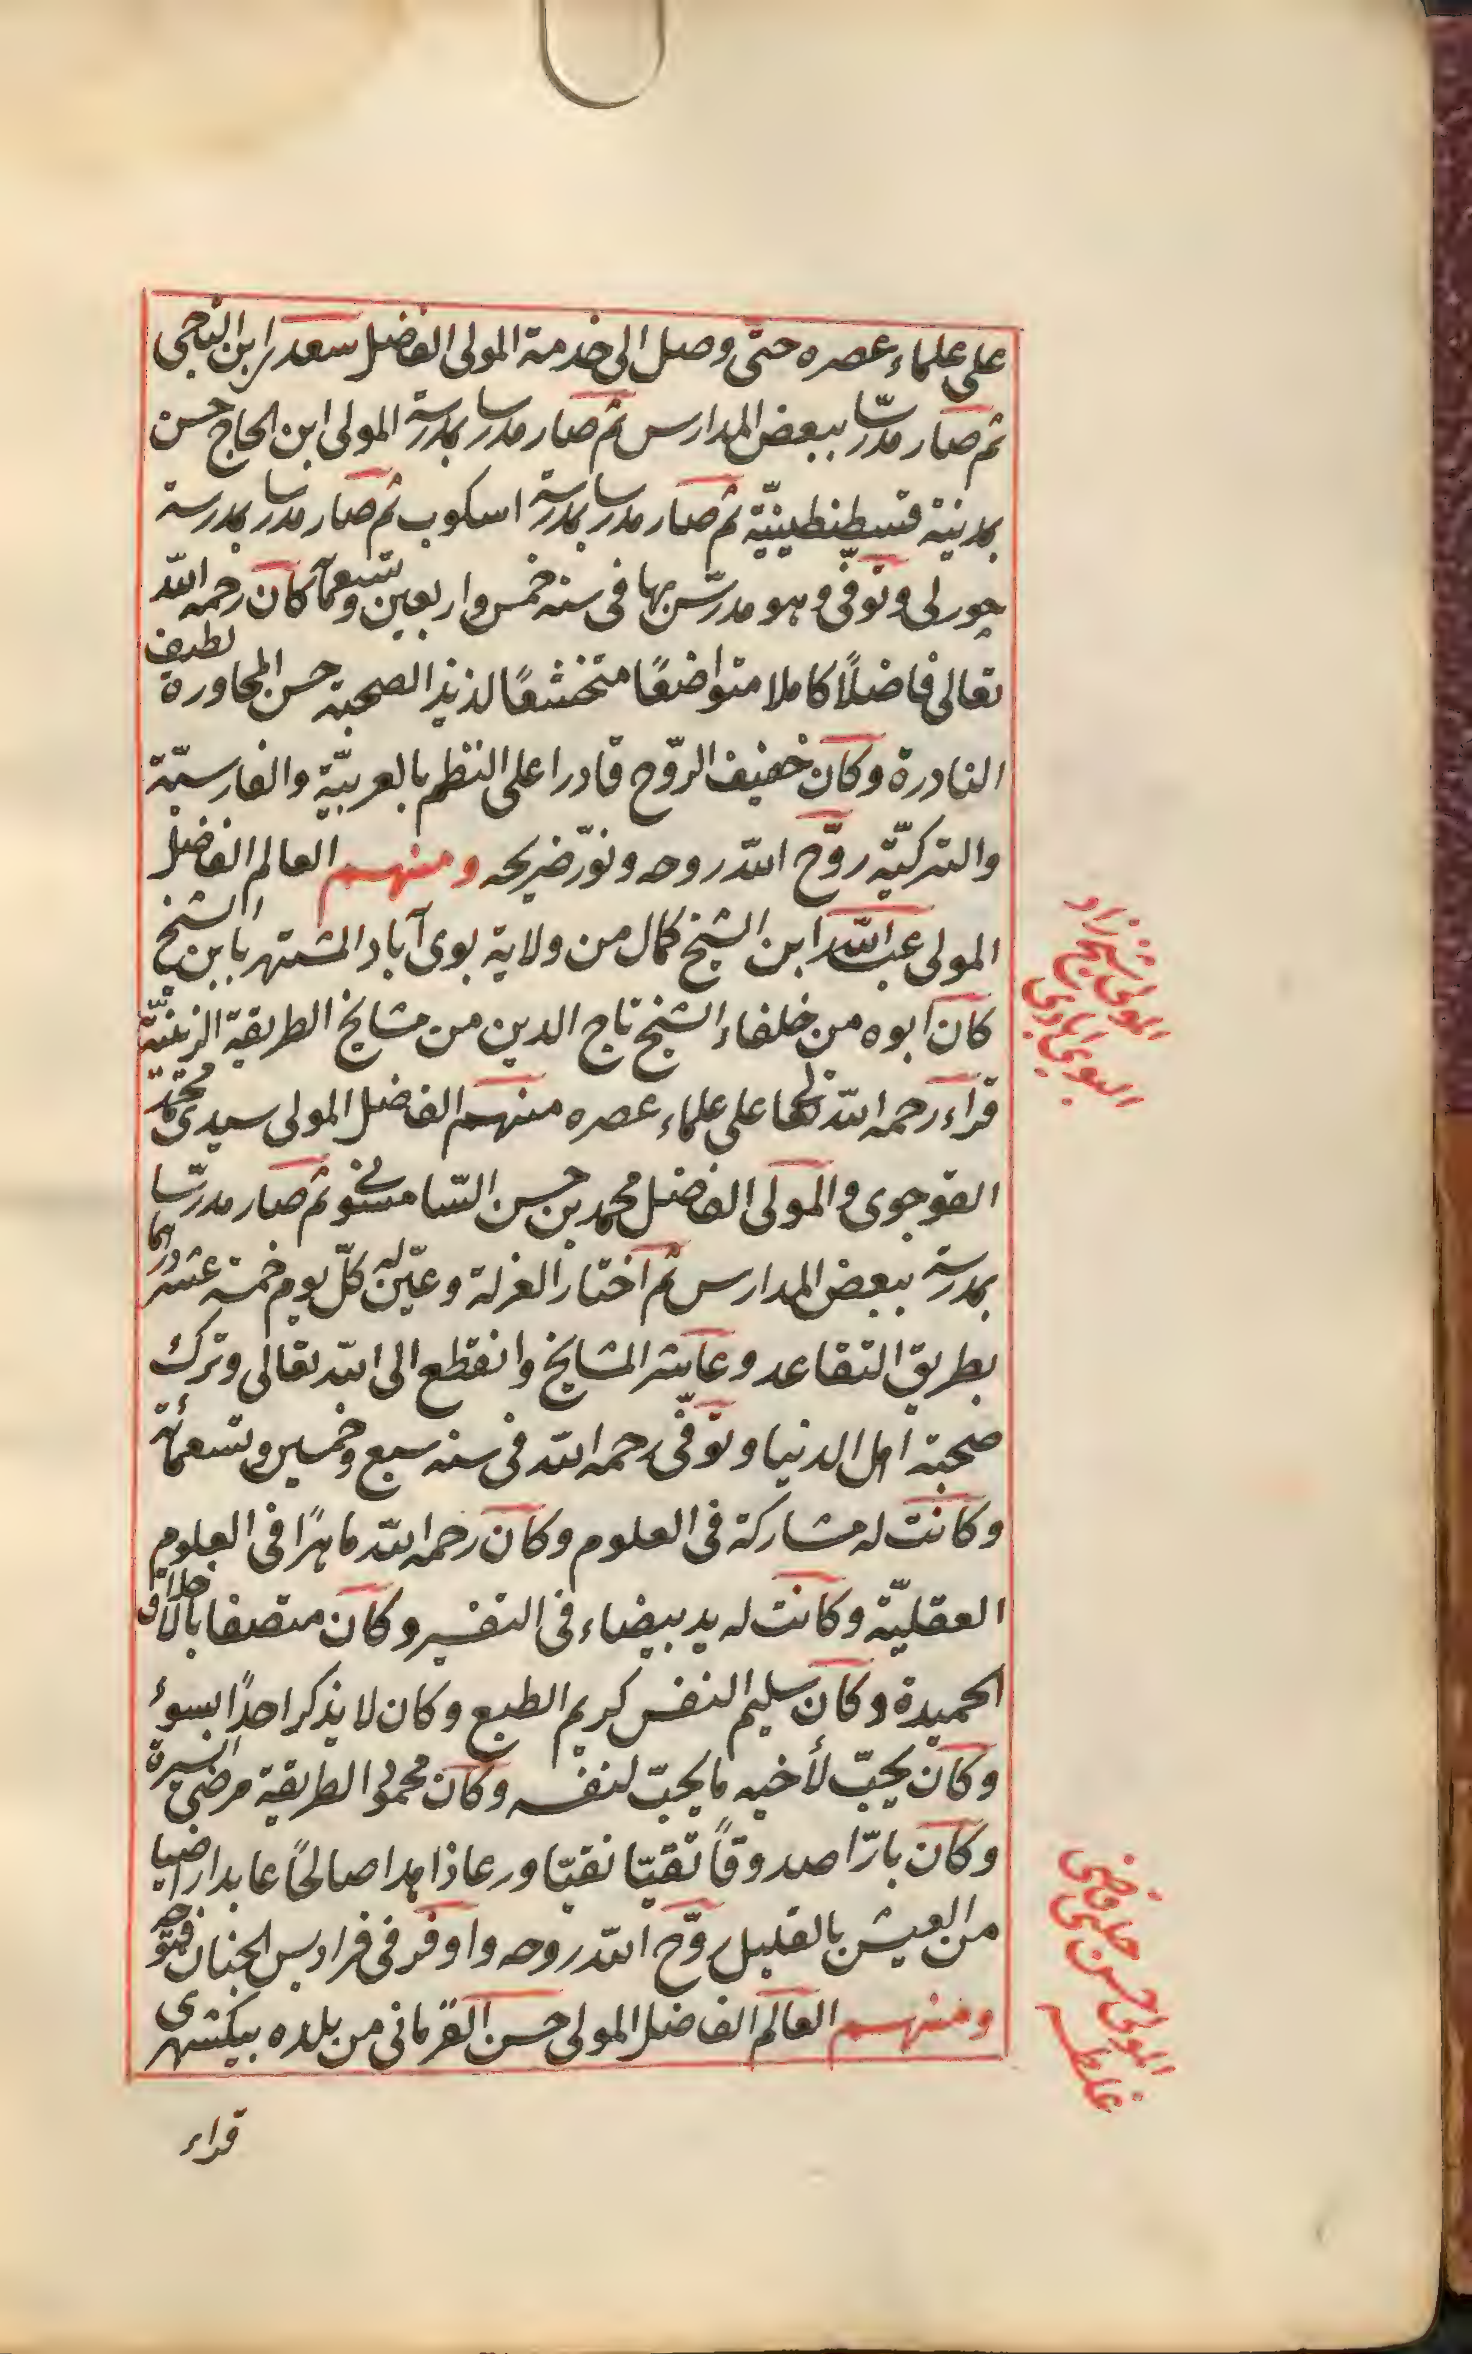 على علماء عصره حتى وصل الى خدمة المولى الفاضل سعد ابن التاجى
ثم صار مدرّسا ببعض المدارس ثم صار مدرسا بمدرسة المولى ابن الحاج حسن
بمدينة قسطنطينيّة ثم صار مدرسا بمدرسة اسكوب ثم صار مدرسا بمدرسة
چورلى وتوفّى وهو مدرّس بها فى سنة خمس واربعين وتسعمائة كان رحمه الله
تعالى فاضلًا كاملا متواضعًا متخشعًا لذيذ الصحبة حسن المحاورة لطيف
النادرة وكان خفيف الروّح قادرا على النظم بالعربيّة والفارسيّة
والتركيّة روّح الله روحه ونوّر ضريحه ومنهم العالم الفاضل
المولى عبد الله ابن الشيخ كمال من ولاية بوى آباد المشتهر بابن الشيخ
كان ابوه من خلفاء الشيخ تاج الدين من مشايخ الطريقة الزينيّة
قراء رحمه الله تعالى على علماء عصره منهم الفاضل المولى سيدى محمّد
القوجوى والمولى الفاضل محمد بن حسن السّامسونى ثم صار مدرّسا
بمدرسة ببعض المدارس ثم اختار العزلة وعيّن له كلّ يوم خمسة عشر درهما
بطريق التقاعد وعاشر المشايخ وانقطع الى الله تعالى وترك
صحبة اهل الدنيا وتوفّى رحمه الله فى سنة سبع وخمسين وتسعمائة
وكانت له مشاركة فى العلوم وكان رحمه الله ماهرًا فى العلوم
العقليّة وكانت له يد بيضاء فى التفسير وكان متصفا بالاخلاق
الحميدة وكان سليم النفس كريم الطبع وكان لا يذكر احدًا بسوء
وكان يحبّ لأخيه ما يحبّ لنفسه وكان محمود الطريقة مرضىّ السيرة
وكان بارّا صدوقًا تقيّا نقيّا ورعا زاهدا صالحًا عابدا راضيا
من العيش بالقليل روّح الله روحه واوفر فى فراديس الجنان فتوحه
ومنهم العالم الفاضل المولى حسن القرمانى من بلده بيكشهرى
قراء
المولى شيخ زاد
البوى ابادى
المولى حسن چلبى قاضى